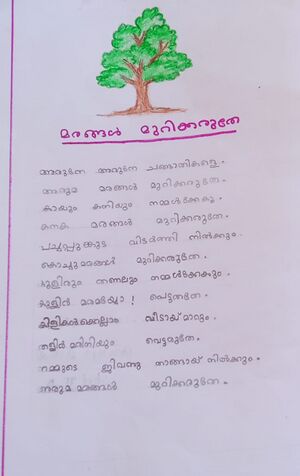 മരങ്ങൾ മുറിക്കരുതേ
അരുതേ അരുതേ ചങ്ങാതികളെ.
അരുമ മരങ്ങൾ മുറിക്കരുതേ.
കായും കനിയും നമ്മൾക്കേകും.
കനക മരങ്ങൾ മുറിക്കരുതേ.
പച്ചപ്പുക്കുട വിടർത്തി നിൽക്കും.
കൊച്ചുമരങ്ങൾ മുറിക്കരുതേ.
കുളിരും തണലും നമ്മൾക്കേകും.
കുളിർ മരമയ്യോ !
കിളികൾക്കെല്ലാം വീടായ് മാറും.
തളിർ വെട്ടരുതേ.
നമ്മുടെ ജീവനു താങ്ങായ് നിൽക്കും.
അരുമ മരങ്ങൾ മുറിക്കരുതേ.